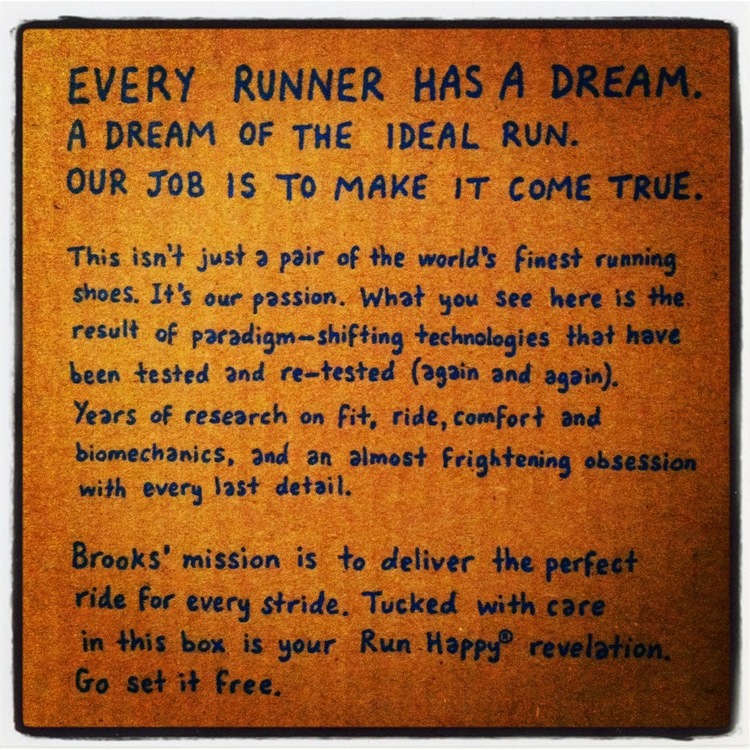 EVERY RUNNER HAS A DREAM.
A DREAM OF THE IDEAL RUN.
OUR JOB IS TO MAKE IT COME TRUE.
This isn't just a pair of the world's finest running
shoes. It's our passion. What you see here is the
result of paradigm-shifting technologies that have
been tested and re-tested (again and again).
Years of research on fit, ride, comfort and
biomechanics, and an almost frightening obsession
with every last detail.
Brooks' mission is to deliver the perfect
ride for every stride. Tucked with care
in this box is your Run Happy® revelation.
Go set it free.